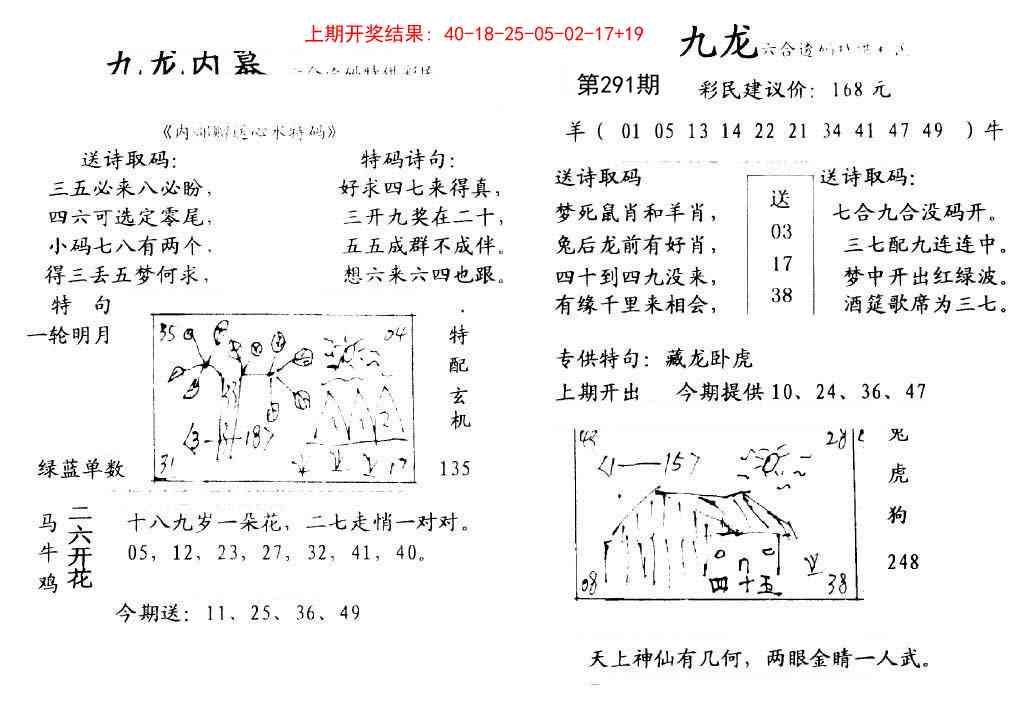 上期开奖结果: 40-18-25-05-02-17+19
九龙内幕
《内部赠送心水特码》
送诗取码:
三五必来八必盼,
四六可选定零尾,
小码七八有两个.
得三丢五梦何求,
特码诗句:
好求四七来得真,
三开九奖在二十,
五五成群不成伴。
想六来六四也跟。
特 句
一轮明月
绿蓝单数
35 04
<3-1-18>
31 17
特
配
玄
机
135
马
牛
鸡
二六开花
十八九岁一朵花, 二七走悄一对对。
05, 12, 23, 27, 32, 41, 40。
今期送: 11、25、36、49
九龙六合透码
第291期
彩民建议价: 168 元
羊 ( 01 05 13 14 22 21 34 41 47 49 ) 牛
送诗取码
梦死鼠肖和羊肖,
兔后龙前有好肖,
四十到四九没来,
有缘千里来相会,
送
03
17
38
送诗取码:
七合九合没码开。
三七配九连连中。
梦中开出红绿波。
酒筵歌席为三七。
专供特句: 藏龙卧虎
上期开出 今期提供 10、24、36、47
28
<1—15>
08 38
四十五
兔
虎
狗
248
天上神仙有几何, 两眼金睛一人武。